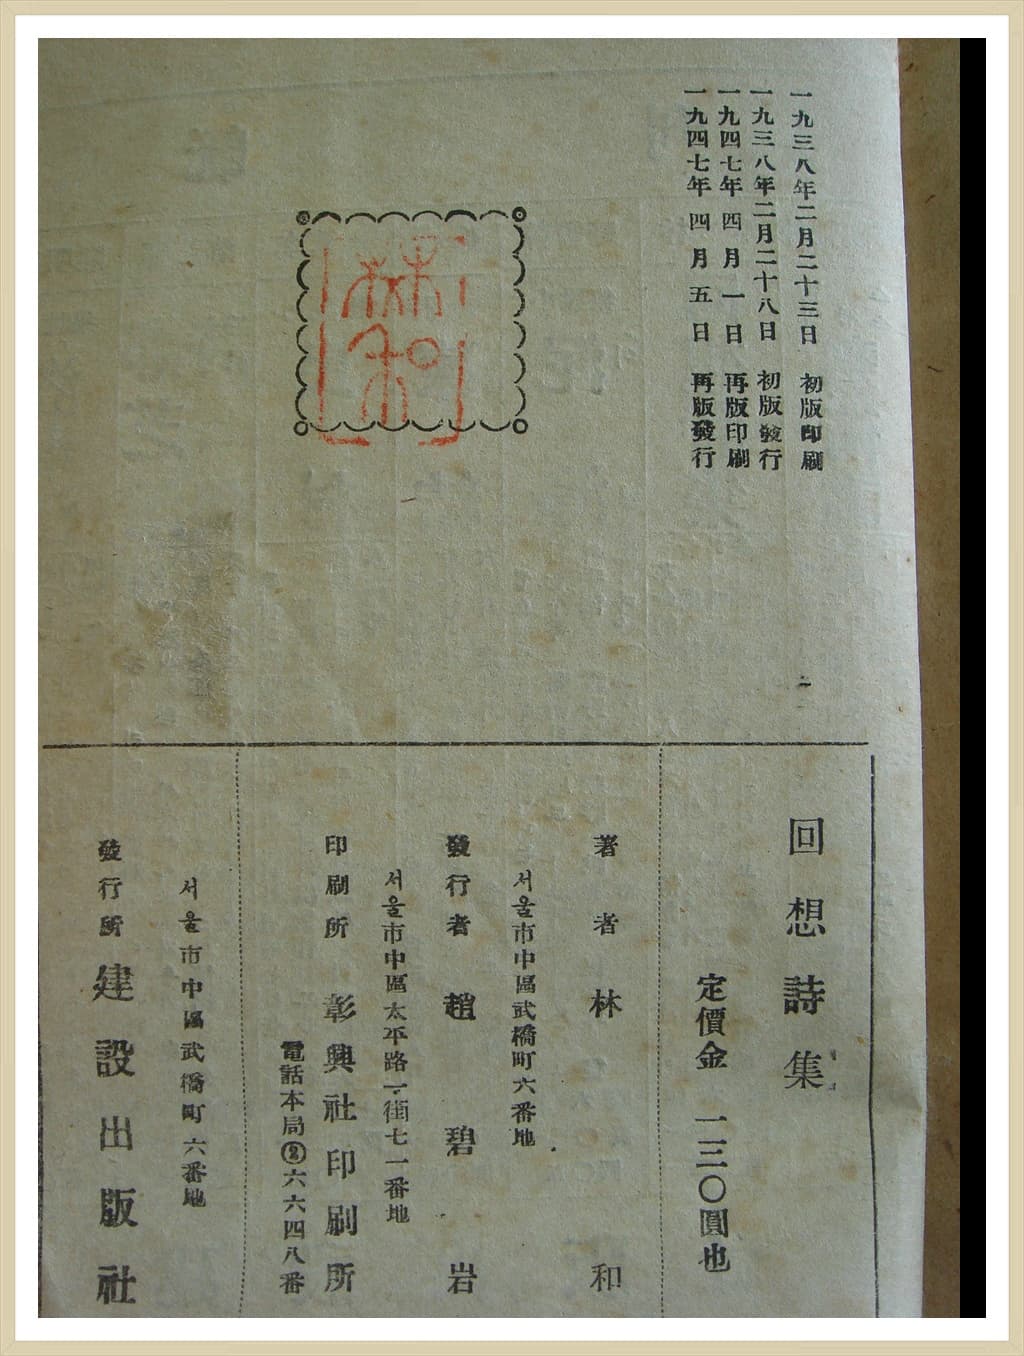 一九三八年二月二十三日 初版印刷
一九三八年二月二十八日 初版發行
一九四七年四月一日 再版印刷
一九四七年四月五日 再版發行
林和
回想詩集
定價金 一三〇圓也
著者 林和
서울市中區武橋町六番地
發行者 趙碧岩
서울市中區太平路一街七一番地
印刷所 彰興社印刷所
電話本局②六六四八番
서울市中區武橋町六番地
發行所 建設出版社